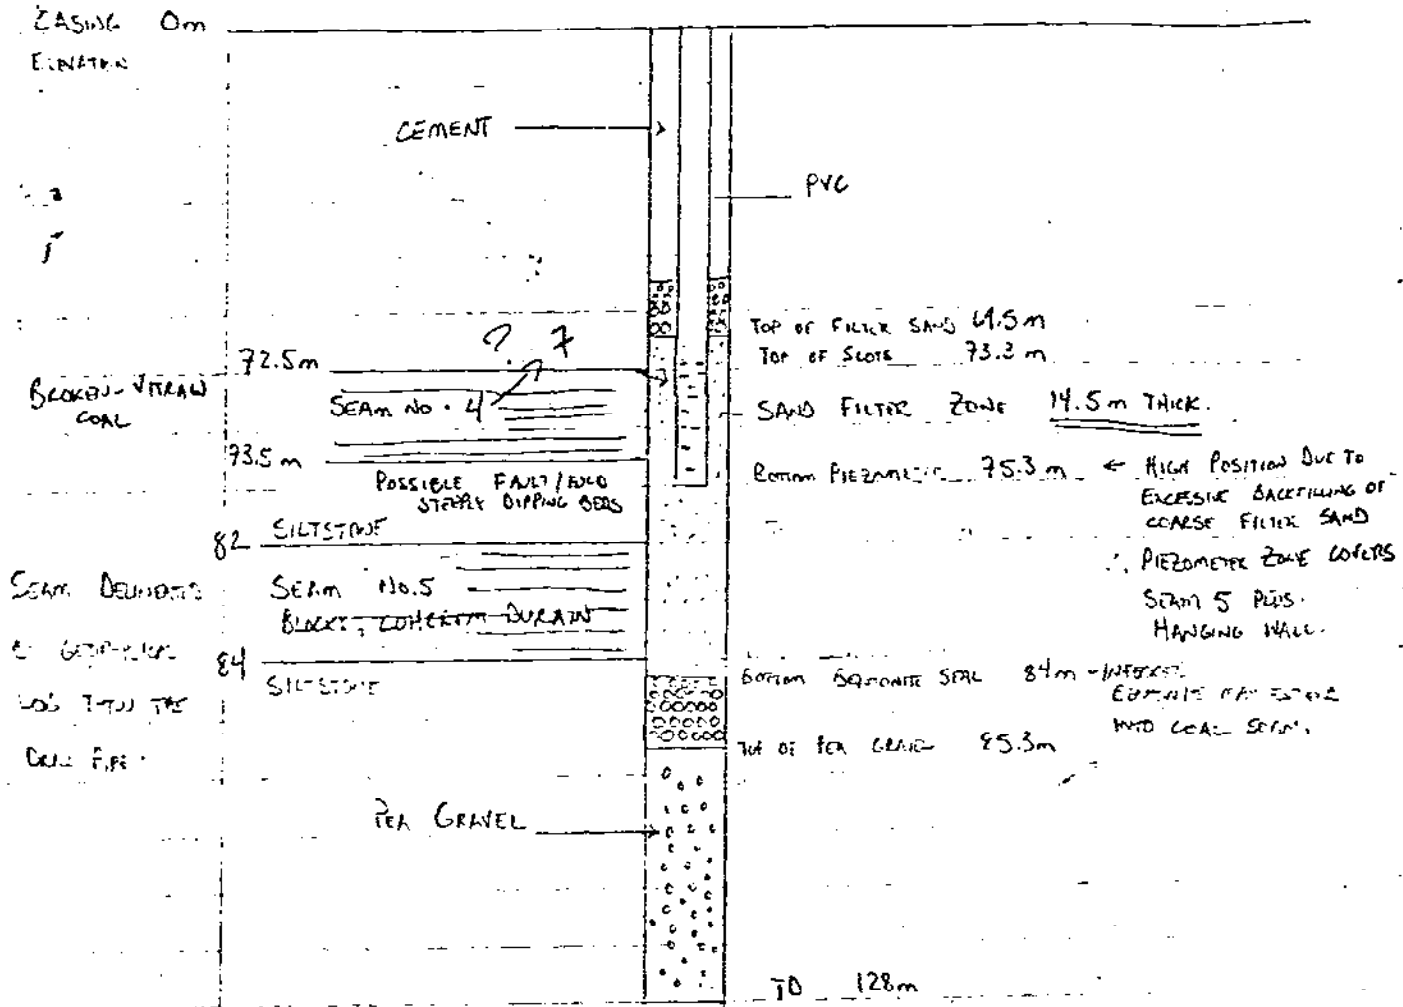 CASING 0m
CEMENT
PVC
TOP OF FILTER SAND 69.5m
TOP OF SLOTS 73.3 m
? 7
72.5m
BROKEN-VITRAIN
COAL
SEAM NO. 4
SAND FILTER ZONE 14.5m THICK.
73.5m
POSSIBLE FAULT/FOLD
STEEPLY DIPPING BEDS
BOTTOM PIEZOMETER 75.3m ← HIGH POSITION DUE TO
EXCESSIVE BACKFILLING OF
COARSE FILTER SAND
∴ PIEZOMETER ZONE COVERS
SEAM 5 PLUS
HANGING WALL.
82 SILTSTONE
SEAM No.5
BLOCKY, COHERENT DURAIN
84
SILTSTONE
SEAM
THE
BOTTOM BENTONITE SEAL 84m
INTO COAL SEAM.
TOP OF PEA GRAVEL 85.3m
PEA GRAVEL
TD 128m